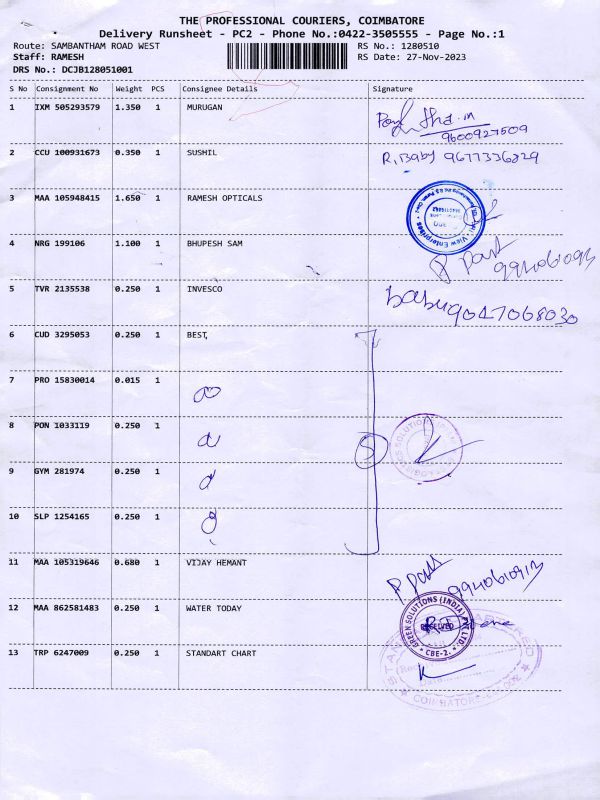 THE PROFESSIONAL COURIERS, COIMBATORE
Delivery Runsheet - PC2 - Phone No.:0422-3505555 - Page No.:1
Route: SAMBANTHAM ROAD WEST RS No.: 1280510
Staff: RAMESH RS Date: 27-Nov-2023
DRS No.: DCJB128051001
S No Consignment No Weight PCS Consignee Details Signature
1 IXM 505293579 1.350 1 MURUGAN
9600927509
2 CCU 100931673 0.350 1 SUSHIL R. Baby 9677336229
3 MAA 105948415 1.650 1 RAMESH OPTICALS
View Enterprises
4 NRG 199106 1.100 1 BHUPESH SAM
9940610913
5 TVR 2135538 0.250 1 INVESCO babu 9047068030
6 CUD 3295053 0.250 1 BEST,
7 PRO 15830014 0.015 1
8 PON 1033119 0.250 1
5
9 GYM 281974 0.250 1
10 SLP 1254165 0.250 1
11 MAA 105319646 0.680 1 VIJAY HEMANT
9940610913
12 MAA 862581483 0.250 1 WATER TODAY
GREEN SOLUTIONS (INDIA) PVT. LTD.
RECEIVED
CBE-2.
13 TRP 6247009 0.250 1 STANDART CHART
COIMBATORE